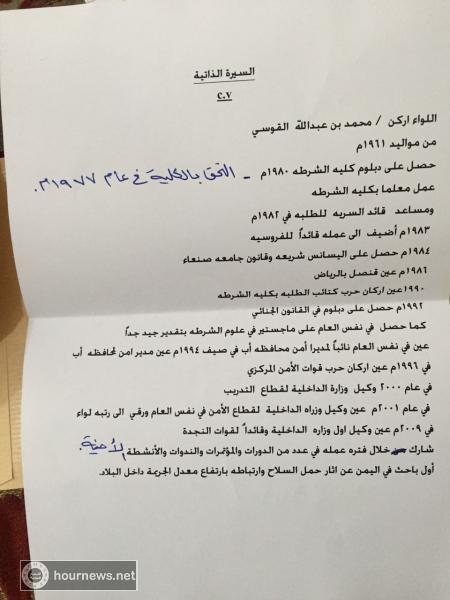 السيرة الذاتية
c.v
اللواء اركن / محمد بن عبدالله القوسي
من مواليد ١٩٦١م
حصل على دبلوم كليه الشرطه ١٩٨٠م - التحق بالكلية في عام ١٩٧٧م.
عمل معلما بكليه الشرطه
ومساعد قائد السريه للطلبه في ١٩٨٢م
١٩٨٣م أضيف الى عمله قائداً للفروسيه
١٩٨٤م حصل على اليسانس شريعه وقانون جامعه صنعاء
١٩٨٦م عين قنصل بالرياض
١٩٩٠عين اركان حرب كتائب الطلبه بكليه الشرطه
١٩٩٢م حصل على دبلوم في القانون الجنائي
كما حصل في نفس العام على ماجستير في علوم الشرطه بتقدير جيد جداً
عين في نفس العام نائباً لمديرا أمن محافظه أب في صيف ١٩٩٤م عين مدير امن لمحافظه أب
في ١٩٩٦م عين اركان حرب قوات الأمن المركزي
في عام ٢٠٠٠ وكيل وزارة الداخلية لقطاع التدريب
في عام ٢٠٠١م عين وكيل وزراه الداخلية لقطاع الأمن في نفس العام ورقي الى رتبه لواء
في ٢٠٠٩م عين وكيل اول وزاره الداخلية وقائداً لقوات النجدة
شارك خلال فتره عمله في عدد من الدورات والمؤتمرات والندوات والأنشطة الأمنية.
أول باحث في اليمن عن اثار حمل السلاح وارتباطه بارتفاع معدل الجريمة داخل البلاد.
hournews.net